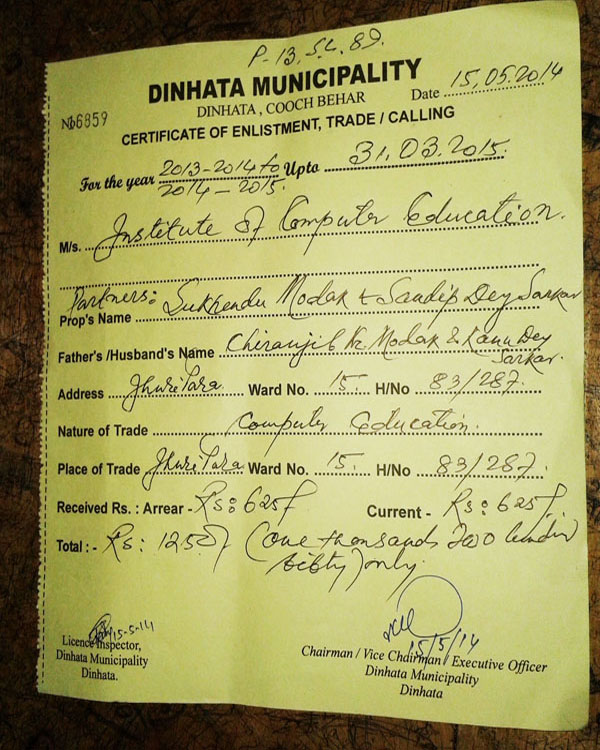 P-13, SL. 89.
DINHATA MUNICIPALITY
DINHATA, COOCH BEHAR
Date 15.05.2014
No 6859
CERTIFICATE OF ENLISTMENT, TRADE / CALLING
For the year 2013-2014 to 2014-2015. Upto 31.03.2015.
M/s. Institute of Computer Education.
Partners:
Prop's Name Sukhendu Modak & Sandip Dey Sarkar
Father's /Husband's Name Chiranjib Kr. Modak & Kanu Dey Sarkar.
Address Jhuripara Ward No. 15. H/No 83/287.
Nature of Trade Computer Education.
Place of Trade Jhuripara Ward No. 15. H/No 83/287.
Received Rs. : Arrear - Rs: 625/ Current - Rs: 625/.
Total : - Rs: 1250/ (One thousands two
only.
15-5-14
15/5/14
Licence Inspector,
Dinhata Municipality
Dinhata.
Chairman / Vice Chairman / Executive Officer
Dinhata Municipality
Dinhata